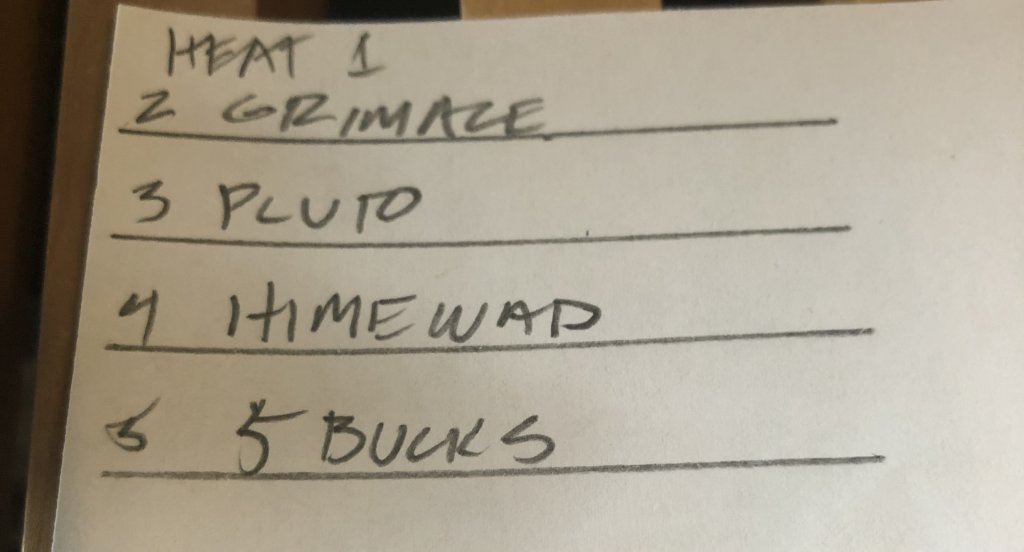 HEAT 1
2 GRIMACE
3 PLUTO
4 HIMEWAD
5 5 BUCKS